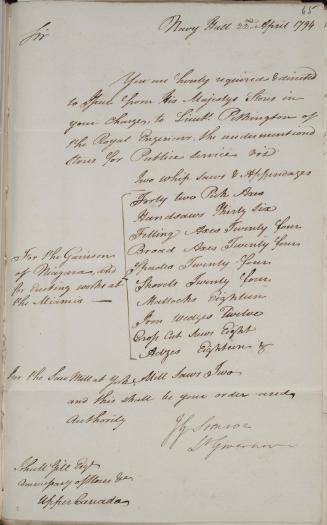 65
Navy Hall 22nd April 1794
Sir
You are hereby required & directed
to Issue from His Majestys Stores in
your Charge, to Lieut. Pilkington of
the Royal Engineers, the undermentioned
Stores for Public service viz
Two whip Saws & Appendages
Forty two Pick Axes
Handsaws Thirty Six
Felling Axes Twenty four
Broad Axes Twenty four
Spades Twenty four
Shovels Twenty four
Mattocks Eighteen
Iron Wedges Twelve
Cross Cut Saws Eight
Adzes Eighteen &
For the Garrison
of Niagara, and
for Erecting works at
the Miamis —
For the Saw Mill at York Mill Saws Two
and this shall be your order and
Authority
J G Simcoe
Lt Governor
John McGill Esqr
Commissary of Stores &c
Upper Canada